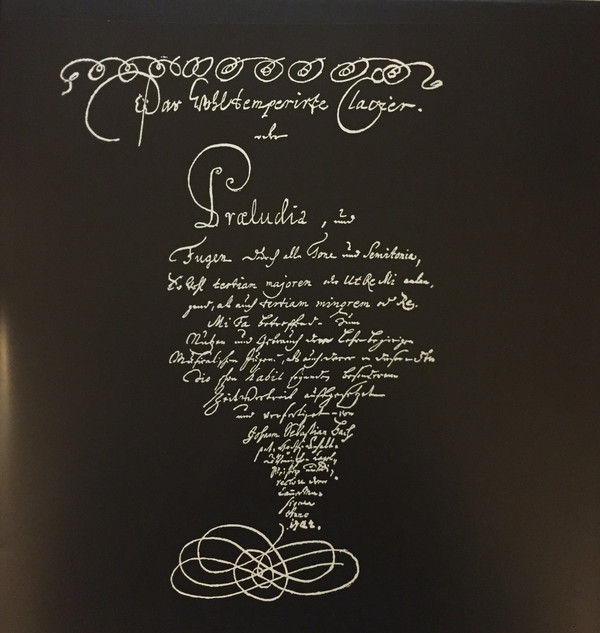 Das Wohltemperirte Clavier.
oder
Præludia, und
Fugen durch alle Tone und Semitonia,
So wohl tertiam majorem oder Ut Re Mi anlan-
gend, als auch tertiam minorem oder Re
Mi Fa betreffend. Zum
Nutzen und Gebrauch der Lehrbegierigen
Musicalischen Jugend, als auch derer in diesem stu-
dio schon habil seyenden besonderem
Zeitvertreib auffgesetzet
und verfertiget von
Johann Sebastian Bach
p. t. Hochfürstl.
Anno
1722.